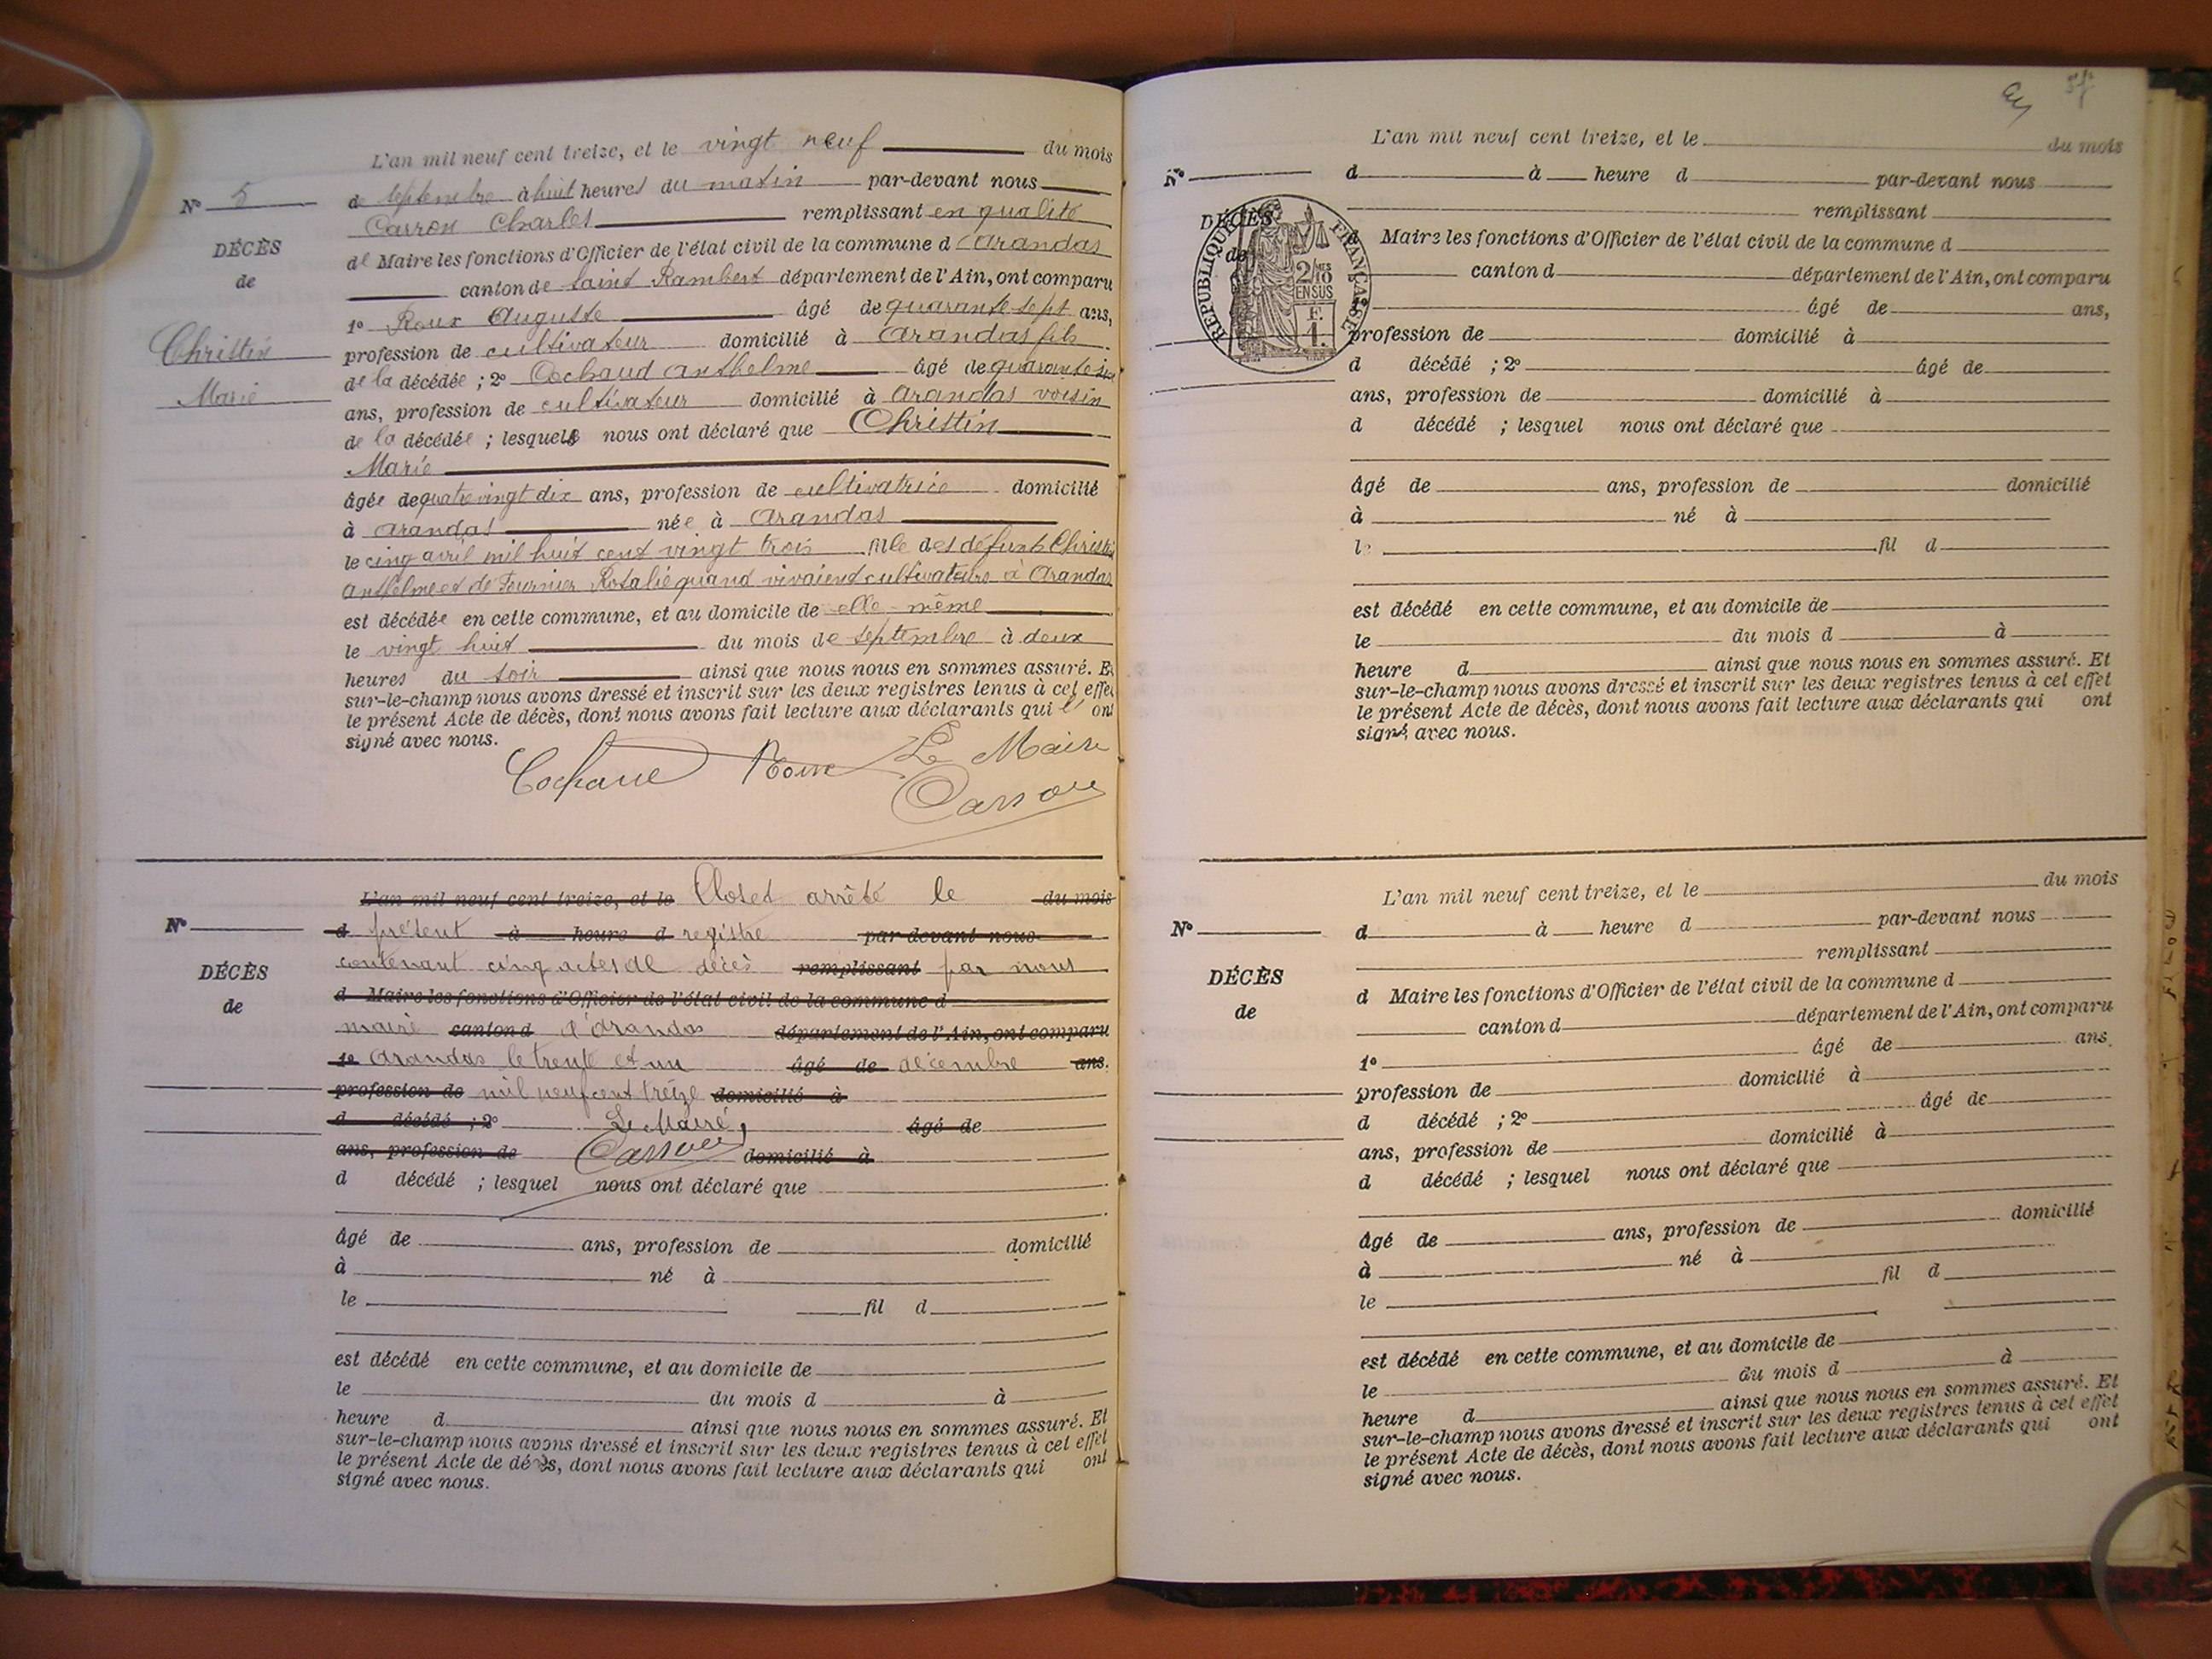 L'an mil neuf cent treize, et le vingt neuf du mois
N° 5
de septembre à huit heures du matin par-devant nous
Carron Charles remplissant en qualité
DÉCÈS
de Maire les fonctions d'Officier de l'état civil de la commune d'Arandas
de
canton de Saint Rambert département de l'Ain, ont comparu
1° Roux Auguste âgé de quarante sept ans,
Christin
profession de cultivateur domicilié à Arandas fils
de la décédée ; 2° Cochaud Anthelme âgé de quarante six
Marie
ans, profession de cultivateur domicilié à Arandas voisin
de la décédée ; lesquels nous ont déclaré que Christin
Marie
âgée de quatre vingt dix ans, profession de cultivatrice domicilié
à Arandas née à Arandas
le cinq avril mil huit cent vingt trois fille des défunts Christin
Anthelme et de Fournier Rosalie quand vivaient cultivateurs à Arandas
est décédée en cette commune, et au domicile de elle-même
le vingt huit du mois de septembre à deux
heures du soir ainsi que nous nous en sommes assuré. Et
sur-le-champ nous avons dressé et inscrit sur les deux registres tenus à cet effet
le présent Acte de décès, dont nous avons fait lecture aux déclarants qui l' ont
signé avec nous.
Le Maire
Cochaud Roux
Carron
L'an mil neuf cent treize, et le Clos et arrêté le du mois
N°
d présent à heure d registre par-devant nous
contenant cinq actes de décès remplissant par nous
DÉCÈS
d Maire les fonctions d'Officier de l'état civil de la commune d
de
maire canton d d'Arandas département de l'Ain, ont comparu
1° Arandas le trente et un âgé de décembre ans.
profession de mil neuf cent treize domicilié à
d décédé ; 2° Le Maire, âgé de
ans, profession de Carron domicilié à
d décédé ; lesquel nous ont déclaré que
âgé de ans, profession de domicilié
à né à
le fil d
est décédé en cette commune, et au domicile de
le du mois d à
heure d ainsi que nous nous en sommes assuré. Et
sur-le-champ nous avons dressé et inscrit sur les deux registres tenus à cet effet
le présent Acte de décès, dont nous avons fait lecture aux déclarants qui ont
signé avec nous.
L'an mil neuf cent treize, et le du mois
N°
d à heure d par-devant nous
remplissant
DÉCÈS
d Maire les fonctions d'Officier de l'état civil de la commune d
de
RÉPUBLIQUE FRANÇAISE
2/10 MES
EN SUS
F.
1.
canton d département de l'Ain, ont comparu
1° âgé de ans,
profession de domicilié à
d décédé ; 2° âgé de
ans, profession de domicilié à
d décédé ; lesquel nous ont déclaré que
âgé de ans, profession de domicilié
à né à
le fil d
est décédé en cette commune, et au domicile de
le du mois d à
heure d ainsi que nous nous en sommes assuré. Et
sur-le-champ nous avons dressé et inscrit sur les deux registres tenus à cet effet
le présent Acte de décès, dont nous avons fait lecture aux déclarants qui ont
signé avec nous.
L'an mil neuf cent treize, et le du mois
N°
d à heure d par-devant nous
remplissant
DÉCÈS
d Maire les fonctions d'Officier de l'état civil de la commune d
de
canton d département de l'Ain, ont comparu
1° âgé de ans.
profession de domicilié à
d décédé ; 2° âgé de
ans, profession de domicilié à
d décédé ; lesquel nous ont déclaré que
âgé de ans, profession de domicilié
à né à
le fil d
est décédé en cette commune, et au domicile de
le du mois d à
heure d ainsi que nous nous en sommes assuré. Et
sur-le-champ nous avons dressé et inscrit sur les deux registres tenus à cet effet
le présent Acte de décès, dont nous avons fait lecture aux déclarants qui ont
signé avec nous.